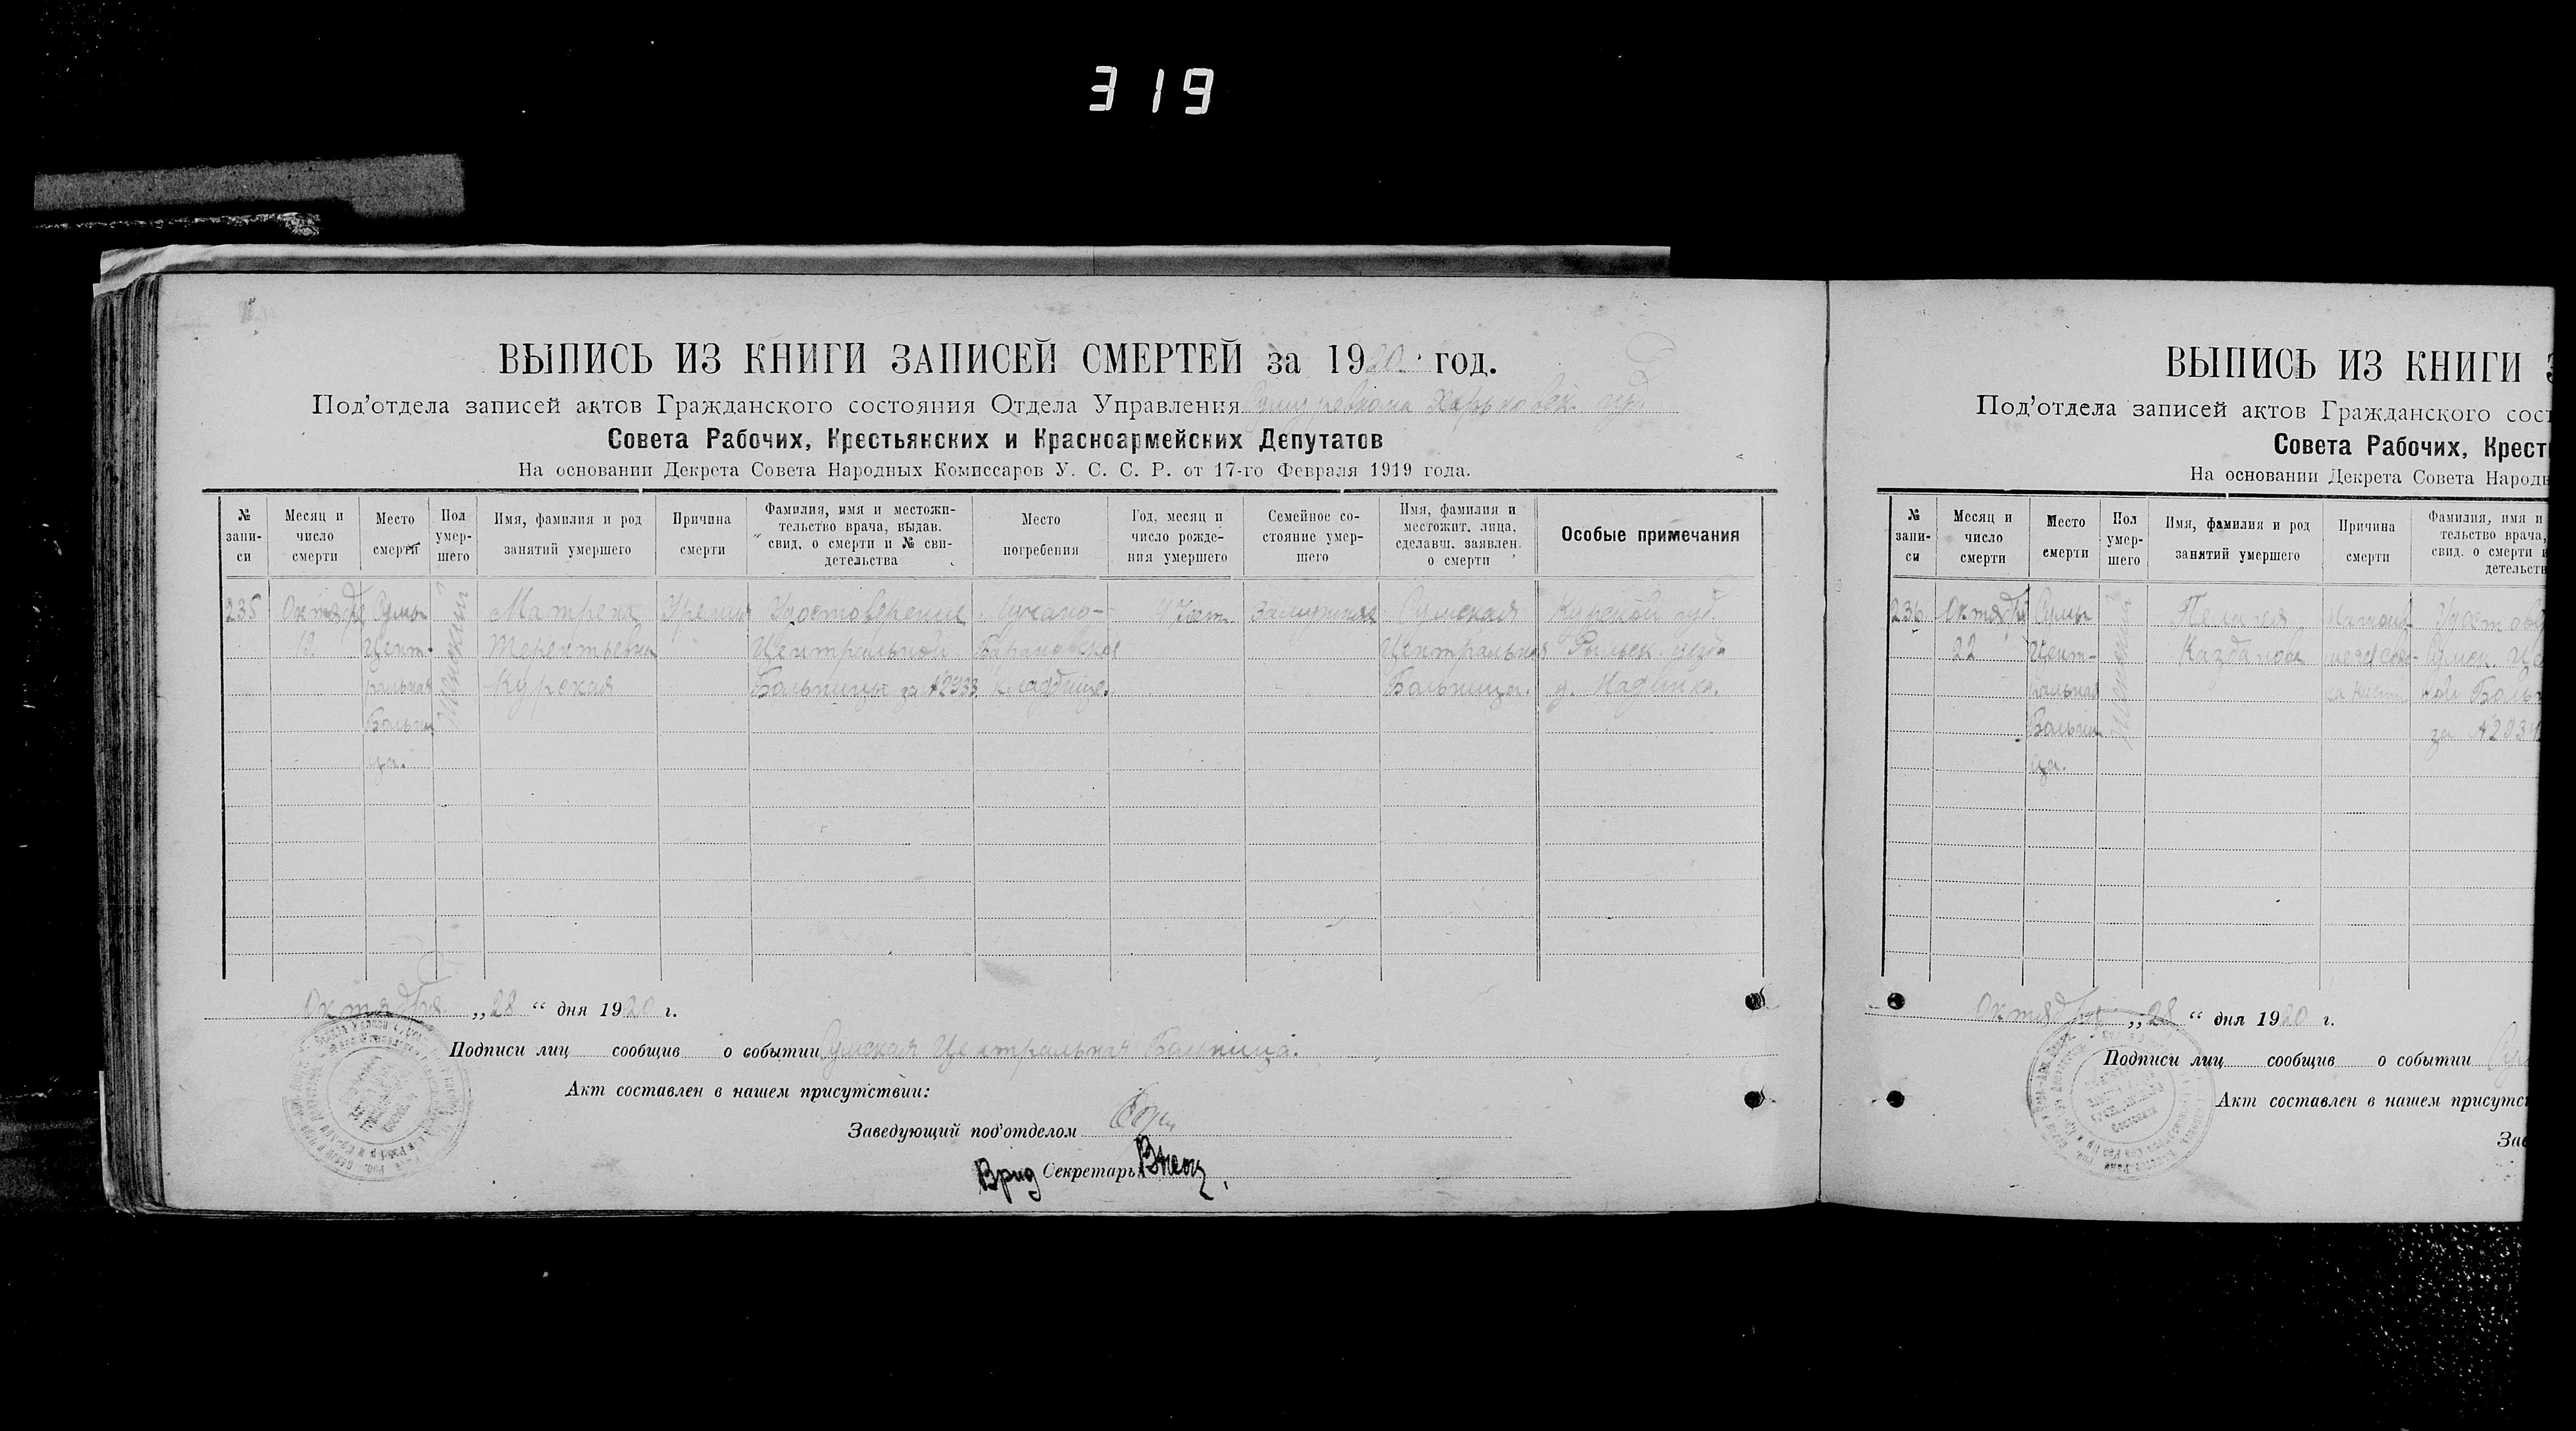 319
ВЫПИСЬ ИЗ КНИГИ ЗАПИСЕЙ СМЕРТЕЙ за 1920 год.
Под'отдела записей актов Гражданского состояния Отдела Управления Сумуревкома Харьковск. губ
Совета Рабочих, Крестьянских и Красноармейских Депутатов
На основании Декрета Совета Народных Комиссаров У. С. С. Р. от 17-го Февраля 1919 года.
№ запи- си
Месяц и число смерти
Место смерти
Пол умер- шего
Имя, фамилия и род занятий умершего
Причина смерти
Фамилия, имя и местожи- тельство врача, выдав. свид. о смерти и № сви- детельства
Место погребения
Год, месяц и число рожде- ния умершего
Семейное со- стояние умер- шего
Имя, фамилия и местожит. лица, сделавш. заявлен. о смерти
Особые примечания
235
Октября
12
Сумы
Цент-
ральная
Больни
ца.
Женский
Матрена
Терентьевна
Курская
Уремия
Удостоверение
Центральной
Больницы за №2933
Лукано-
Барановское
Кладбище.
Замужняя
Сумская
Центральная
Больница.
Курской губ.
Рыльск. уезда
д.
Октября „28“ дня 1920 г.
Подписи лиц сообщив о событии Сумская Центральная Больница.
Акт составлен в нашем присутствии:
Заведующий под'отделом
Врид Секретарь
ВЫПИСЬ ИЗ КНИГИ З
Под'отдела записей актов Гражданского сост
Совета Рабочих, Крест
На основании Декрета Совета Народн
№ запи- си
Месяц и число смерти
Место смерти
Пол умер- шего
Имя, фамилия и род занятий умершего
Причина смерти
Фамилия, имя и тельство врача, свид. о смерти и детельств
236
Октября
22
Сумы
Цент-
ральная
Больни
ца.
Женский
Пелагея
Удостове
Сумск. Це
ной Больн
за
Октября „28“ дня 1920 г.
Подписи лиц сообщив о событии Сум
Акт составлен в нашем присутст
Зав